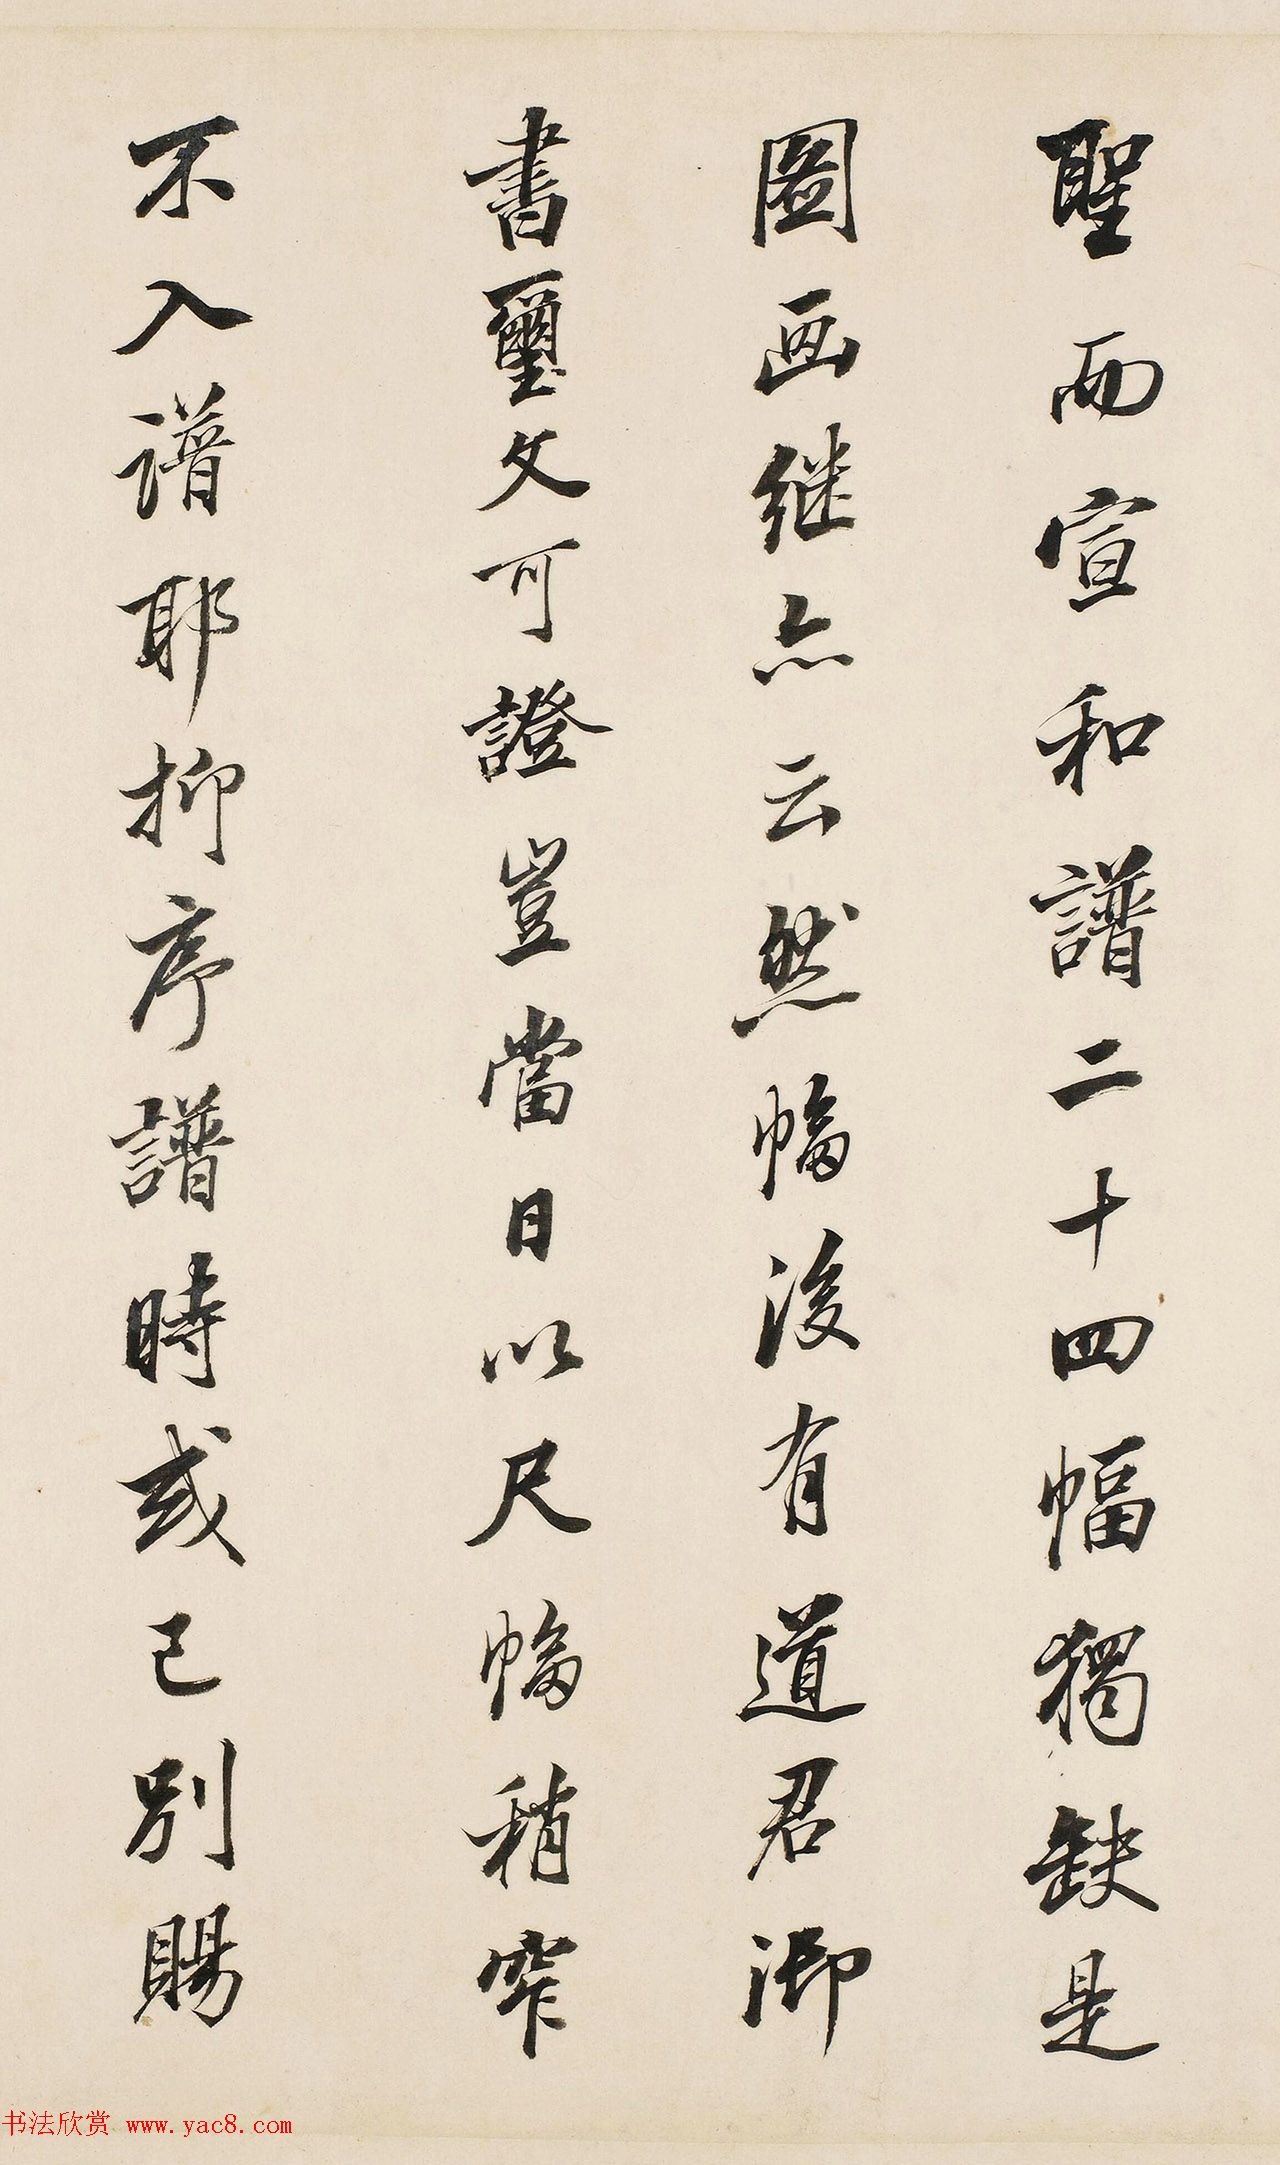 聖而宣和譜二十四幅獨缺是
圖画継亦云然幅後有道君御
書璽文可證豈當日以尺幅稍窄
不入譜耶抑序譜時或已別賜
书法欣赏 www.yac8.com